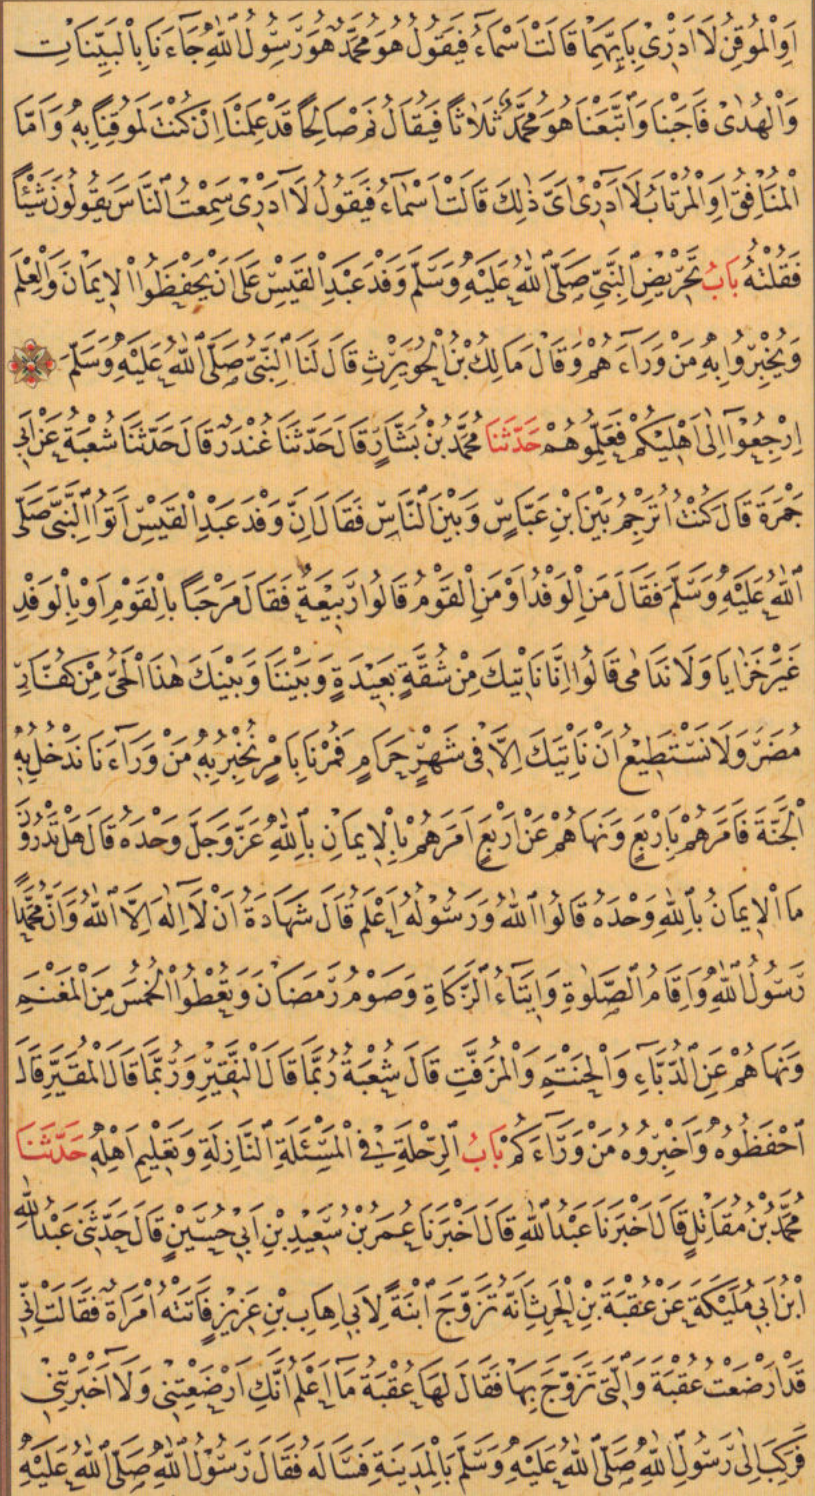 اَوِ الْمُوقِنُ لَا اَدْرِى بِاَيِّهِمَا قَالَتْ اَسْمَاءُ فَيَقُولُ هُوَ مُحَمَّدٌ هُوَ رَسُولُ اللّٰهِ جَاءَنَا بِالْبَيِّنَاتِ
وَالْهُدٰى فَاَجَبْنَا وَاتَّبَعْنَا هُوَ مُحَمَّدٌ ثَلَاثًا فَيُقَالُ نَمْ صَالِحًا قَدْ عَلِمْنَا اِنْ كُنْتَ لَمُوقِنًا بِهِ وَاَمَّا
الْمُنَافِقُ اَوِ الْمُرْتَابُ لَا اَدْرِى اَىَّ ذٰلِكَ قَالَتْ اَسْمَاءُ فَيَقُولُ لَا اَدْرِى سَمِعْتُ النَّاسَ يَقُولُونَ شَيْئًا
فَقُلْتُهُ بَابُ تَحْرِيضِ النَّبِىِّ صَلَّى اللّٰهُ عَلَيْهِ وَسَلَّمَ وَفْدَ عَبْدِ الْقَيْسِ عَلَى اَنْ يَحْفَظُوا الْاِيمَانَ وَالْعِلْمَ
وَيُخْبِرُوا بِهِ مَنْ وَرَاءَهُمْ وَقَالَ مَالِكُ بْنُ الْحُوَيْرِثِ قَالَ لَنَا النَّبِىُّ صَلَّى اللّٰهُ عَلَيْهِ وَسَلَّمَ
اِرْجِعُوا اِلٰى اَهْلِيكُمْ فَعَلِّمُوهُمْ حَدَّثَنَا مُحَمَّدُ بْنُ بَشَّارٍ قَالَ حَدَّثَنَا غُنْدَرٌ قَالَ حَدَّثَنَا شُعْبَةُ عَنْ اَبِى
جَمْرَةَ قَالَ كُنْتُ اُتَرْجِمُ بَيْنَ ابْنِ عَبَّاسٍ وَبَيْنَ النَّاسِ فَقَالَ اِنَّ وَفْدَ عَبْدِ الْقَيْسِ اَتَوُا النَّبِىَّ صَلَّى
اللّٰهُ عَلَيْهِ وَسَلَّمَ فَقَالَ مَنِ الْوَفْدُ اَوْ مَنِ الْقَوْمُ قَالُوا رَبِيعَةُ فَقَالَ مَرْحَبًا بِالْقَوْمِ اَوْ بِالْوَفْدِ
غَيْرَ خَزَايَا وَلَا نَدَامٰى قَالُوا اِنَّا نَأْتِيكَ مِنْ شُقَّةٍ بَعِيدَةٍ وَبَيْنَنَا وَبَيْنَكَ هٰذَا الْحَىُّ مِنْ كُفَّارِ
مُضَرَ وَلَا نَسْتَطِيعُ اَنْ نَأْتِيَكَ اِلَّا فِى شَهْرٍ حَرَامٍ فَمُرْنَا بِاَمْرٍ نُخْبِرُ بِهِ مَنْ وَرَاءَنَا نَدْخُلُ بِهِ
الْجَنَّةَ فَاَمَرَهُمْ بِاَرْبَعٍ وَنَهَاهُمْ عَنْ اَرْبَعٍ اَمَرَهُمْ بِالْاِيمَانِ بِاللّٰهِ عَزَّ وَجَلَّ وَحْدَهُ قَالَ هَلْ تَدْرُونَ
مَا الْاِيمَانُ بِاللّٰهِ وَحْدَهُ قَالُوا اللّٰهُ وَرَسُولُهُ اَعْلَمُ قَالَ شَهَادَةُ اَنْ لَا اِلٰهَ اِلَّا اللّٰهُ وَاَنَّ مُحَمَّدًا
رَسُولُ اللّٰهِ وَاِقَامُ الصَّلٰوةِ وَاِيتَاءُ الزَّكَاةِ وَصَوْمُ رَمَضَانَ وَتُعْطُوا الْخُمُسَ مِنَ الْمَغْنَمِ
وَنَهَاهُمْ عَنِ الدُّبَّاءِ وَالْحَنْتَمِ وَالْمُزَفَّتِ قَالَ شُعْبَةُ رُبَّمَا قَالَ النَّقِيرِ وَرُبَّمَا قَالَ الْمُقَيَّرِ قَالَ
احْفَظُوهُ وَاَخْبِرُوهُ مَنْ وَرَاءَكُمْ بَابُ الرِّحْلَةِ فِى الْمَسْئَلَةِ النَّازِلَةِ وَتَعْلِيمِ اَهْلِهِ حَدَّثَنَا
مُحَمَّدُ بْنُ مُقَاتِلٍ قَالَ اَخْبَرَنَا عَبْدُ اللّٰهِ قَالَ اَخْبَرَنَا عُمَرُ بْنُ سَعِيدِ بْنِ اَبِى حُسَيْنٍ قَالَ حَدَّثَنِى عَبْدُ اللّٰهِ
ابْنُ اَبِى مُلَيْكَةَ عَنْ عُقْبَةَ بْنِ الْحَرِثِ اَنَّهُ تَزَوَّجَ ابْنَةً لِاَبِى اِهَابِ بْنِ عَزِيزٍ فَاَتَتْهُ امْرَاَةٌ فَقَالَتْ اِنِّى
قَدْ اَرْضَعْتُ عُقْبَةَ وَالَّتِى تَزَوَّجَ بِهَا فَقَالَ لَهَا عُقْبَةُ مَا اَعْلَمُ اَنَّكِ اَرْضَعْتِنِى وَلَا اَخْبَرْتِنِى
فَرَكِبَ اِلٰى رَسُولِ اللّٰهِ صَلَّى اللّٰهُ عَلَيْهِ وَسَلَّمَ بِالْمَدِينَةِ فَسَاَلَهُ فَقَالَ رَسُولُ اللّٰهِ صَلَّى اللّٰهُ عَلَيْهِ